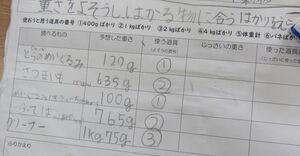 重さをよそうし、はかる物に合うはかりをえら
使おうと思う道具の番号 ①400gばかり ②1kgばかり ③2kgばかり ④4kgばかり ⑤体重計 ⑥バネばか
調べるもの 予想した重さ 使う道具 じっさいの重さ 使った道具
120g ①
さつまいも 635g ②
100g ①
765g ②
クリーナー 1kg75g ③
ふりかえり